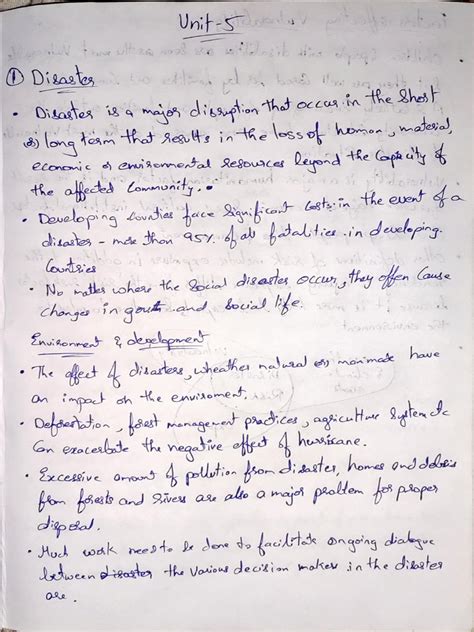 Unit-5
① Disaster
• Disaster is a major disruption that occur in the short
(or) long term that results in the loss of homan, material,
economic or environmental resources beyond the capacity of
the affected community.
• Developing counties face significant costs in the event of a
disaster - more than 95% of all fatalities in developing
Countries
• No matter where the social disaster occur, they offen cause
changes in and social life.
Environment & development
• The affect of disasters, wheather natural or manmade have
an impact on the enviroment.
• Deforestation, forest management practices, agriculture system etc
can exacerbate the negative effect of hurricane.
• Excessive amount of pollution from disaster, homes and debris
from forests and rivers are also a major problem for proper
disposal.
• Much work need to be done to facilitate ongoing dialogue
between disaster the various decision maker in the disaster
are.